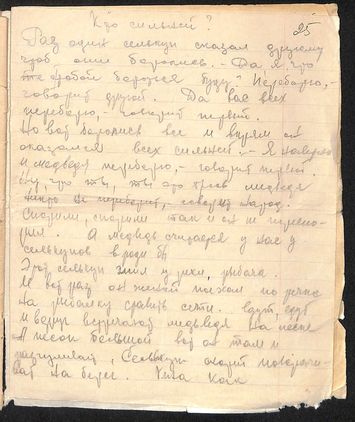 Кто сильней?
25
Раз один селькуп сказал другому
чтоб они боролись. - Да я что
же с тобой бороться буду? Переборю, -
говорит другой. Да вас всех
переборю, - говорит первый.
Но вот боролись все и впрям он
оказался всех сильней. - Я наверно
и медведя переборю, - говорит первый.
Ну, что ты, ты что против медведя
говорит народ.
Спорили, спорили так и он не переспо-
рил. А медведь считается у нас у
селькупов вроде бы
Этот селькуп жил у реки, рыбачил.
И вот раз он женой поехал по речке
на рыбалку сети. Едут, едут
и вдруг встречают медведя на песке
А песок большой вот он там и
разгуливает, Селькуп скорей поворачи-
вает на берег. Хита кок